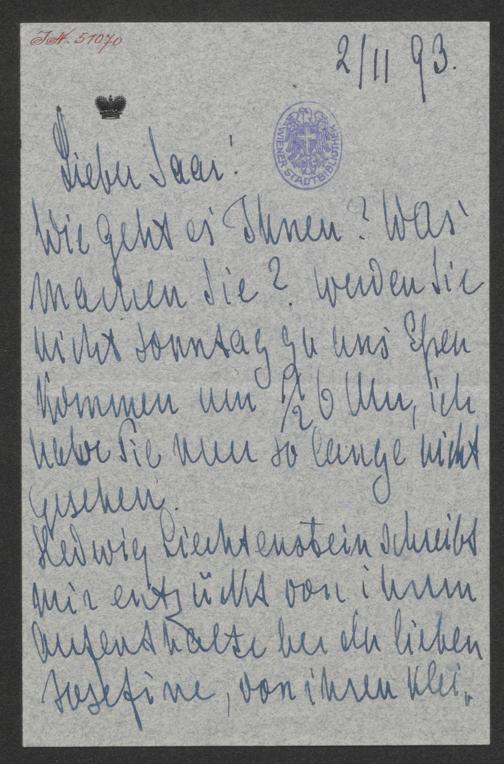 J.N. 51070
2/II 93.
WIENER STADTBIBLIOTHEK
Lieber Saar!
Wie geht es Ihnen? Was
machen Sie? werden Sie
nicht Sonntag zu uns Essen
kommen um 1/2 6 Uhr, ich
habe Sie nun so lange nicht
gesehen.
Hedwig Liechtenstein schreibt
mir entzückt von ihrem
aufenthalte bei der lieben
Josefine, von ihren klei-